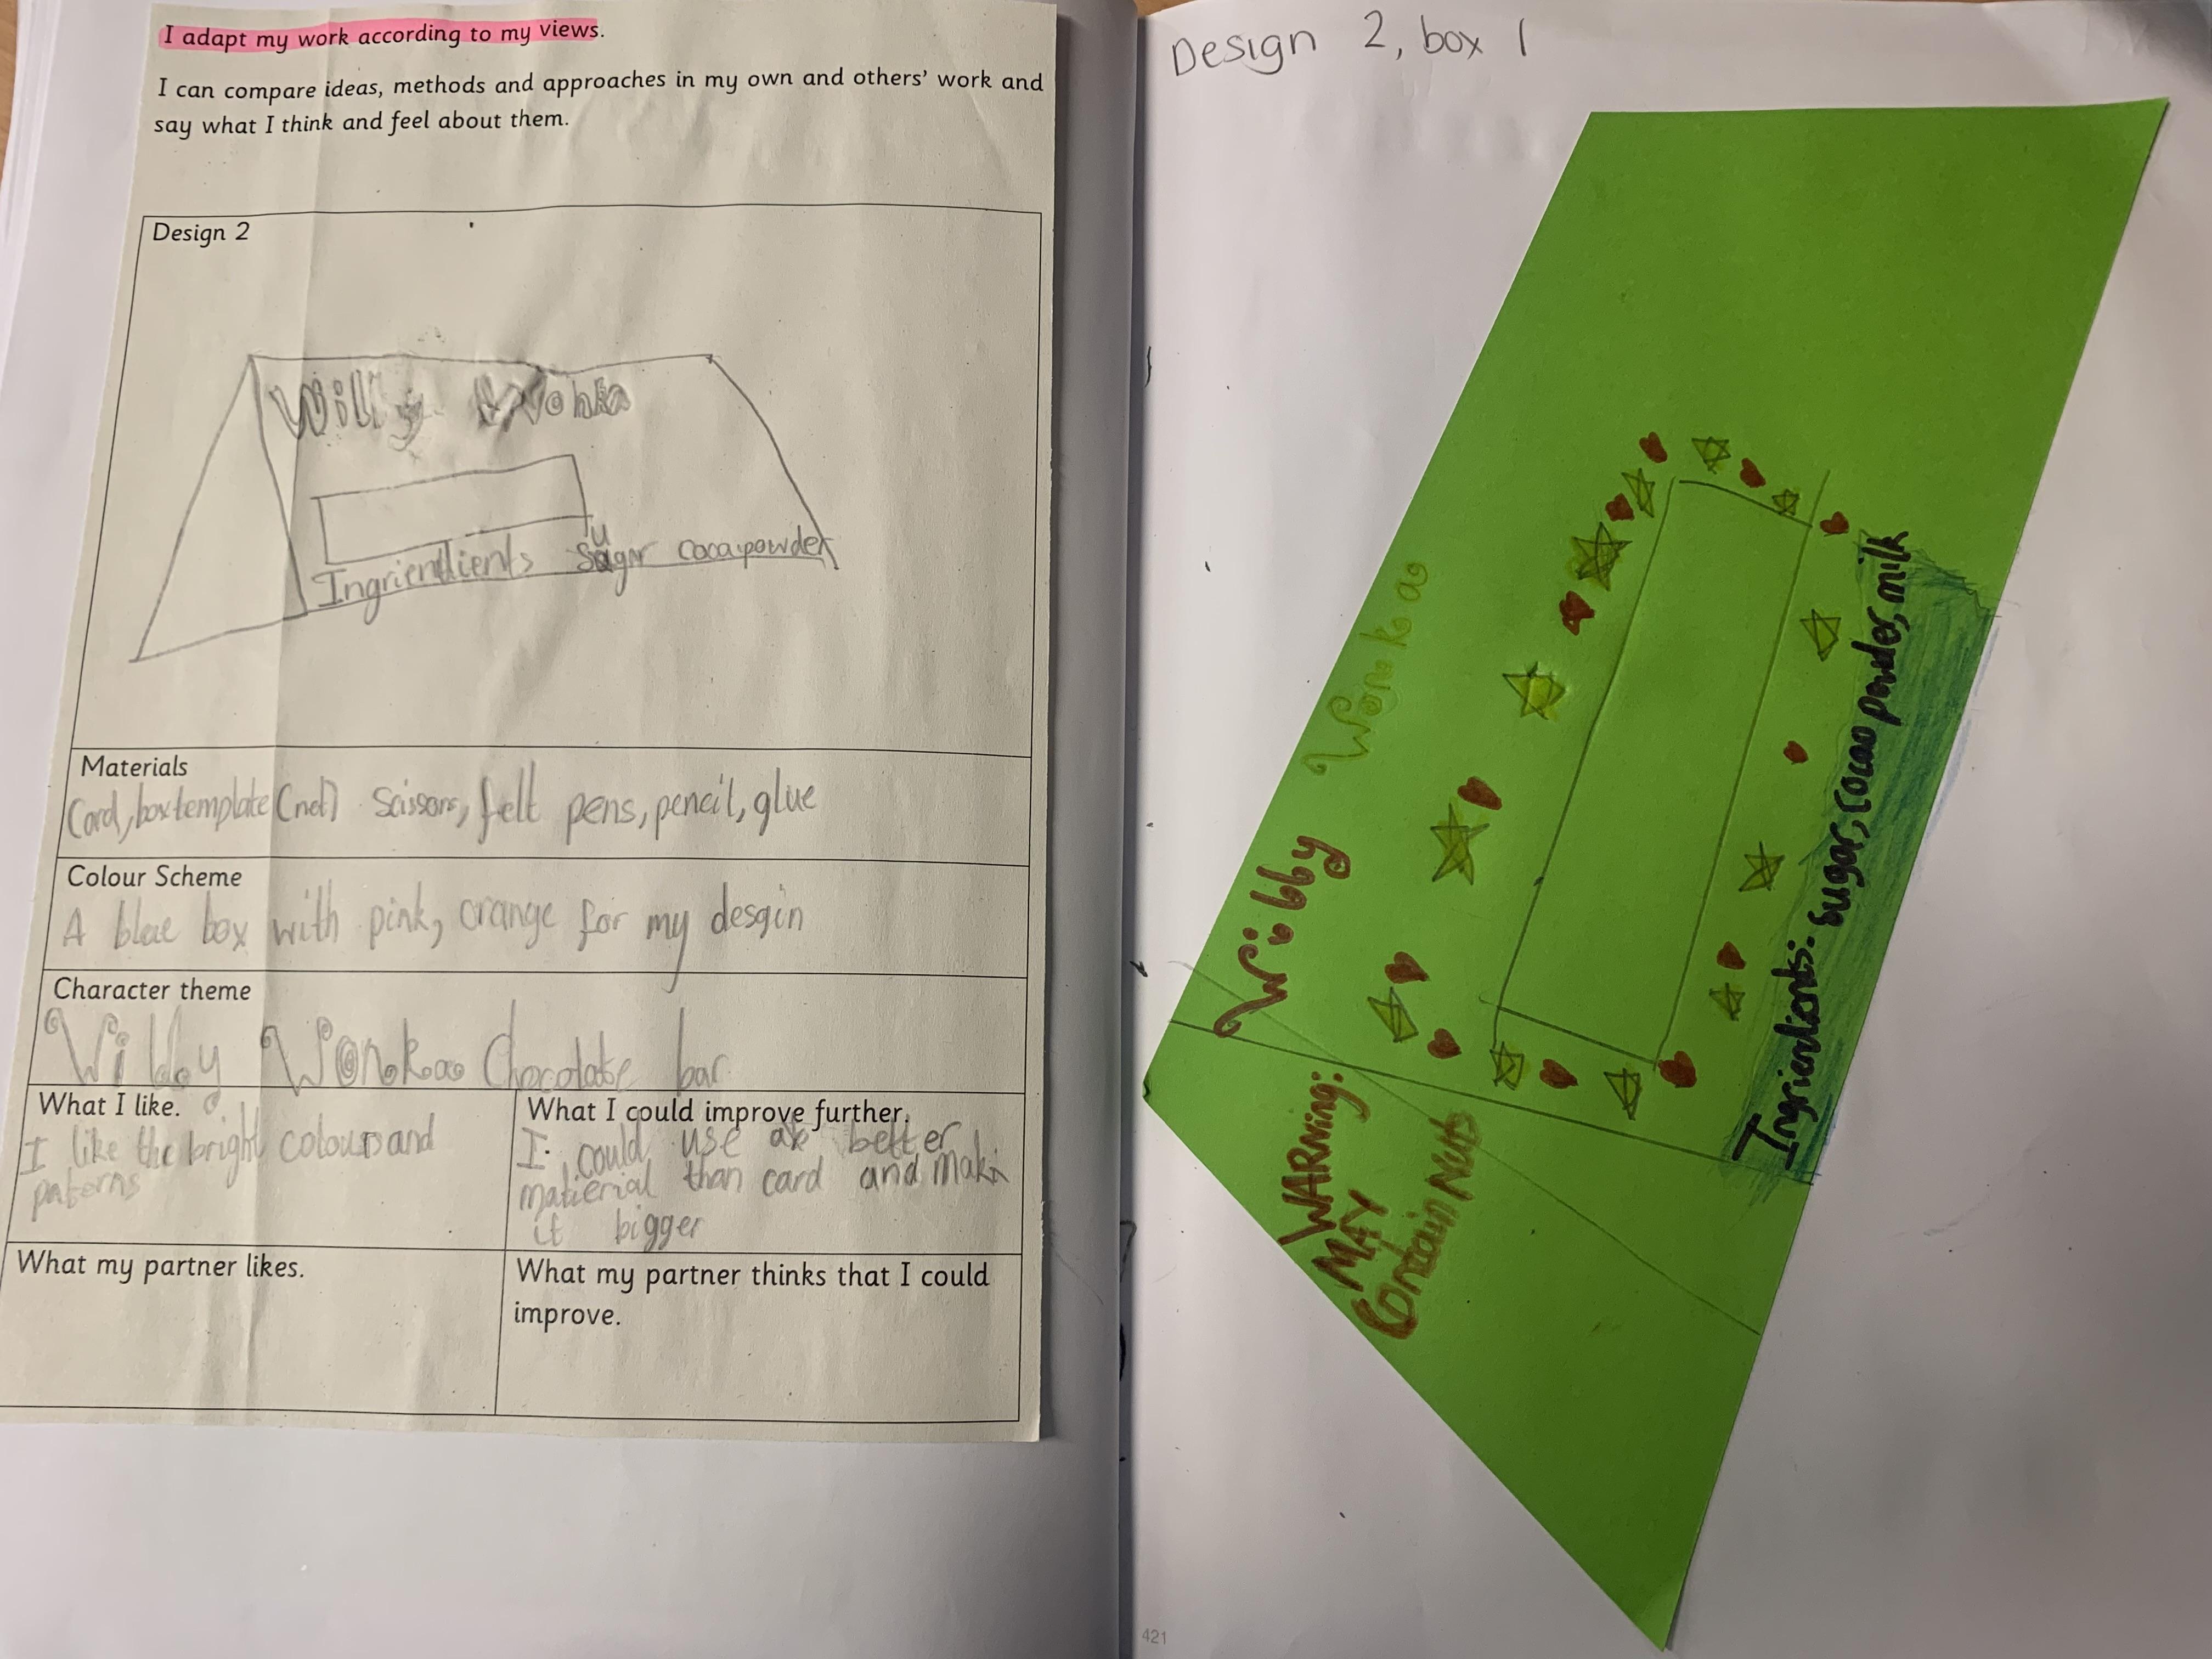 I adapt my work according to my views.
I can compare ideas, methods and approaches in my own and others' work and
say what I think and feel about them.
Design 2
Willy Wonka
Ingriendients Sugar cocapowder
Materials
Card, box template (net) scissors, felt pens, pencil, glue
Colour Scheme
A blue box with pink, orange for my desgin
Character theme
Wonka Chocolate bar
What I like.
I like the bright colours and
paterns
What I could improve further.
I could use a better
matierial than card and
it bigger
What my partner likes.
What my partner thinks that I could
improve.
Design 2, box 1
Wonka
WARNing:
MAY
Contain Nuts
sugar, cocao powder, milk
421